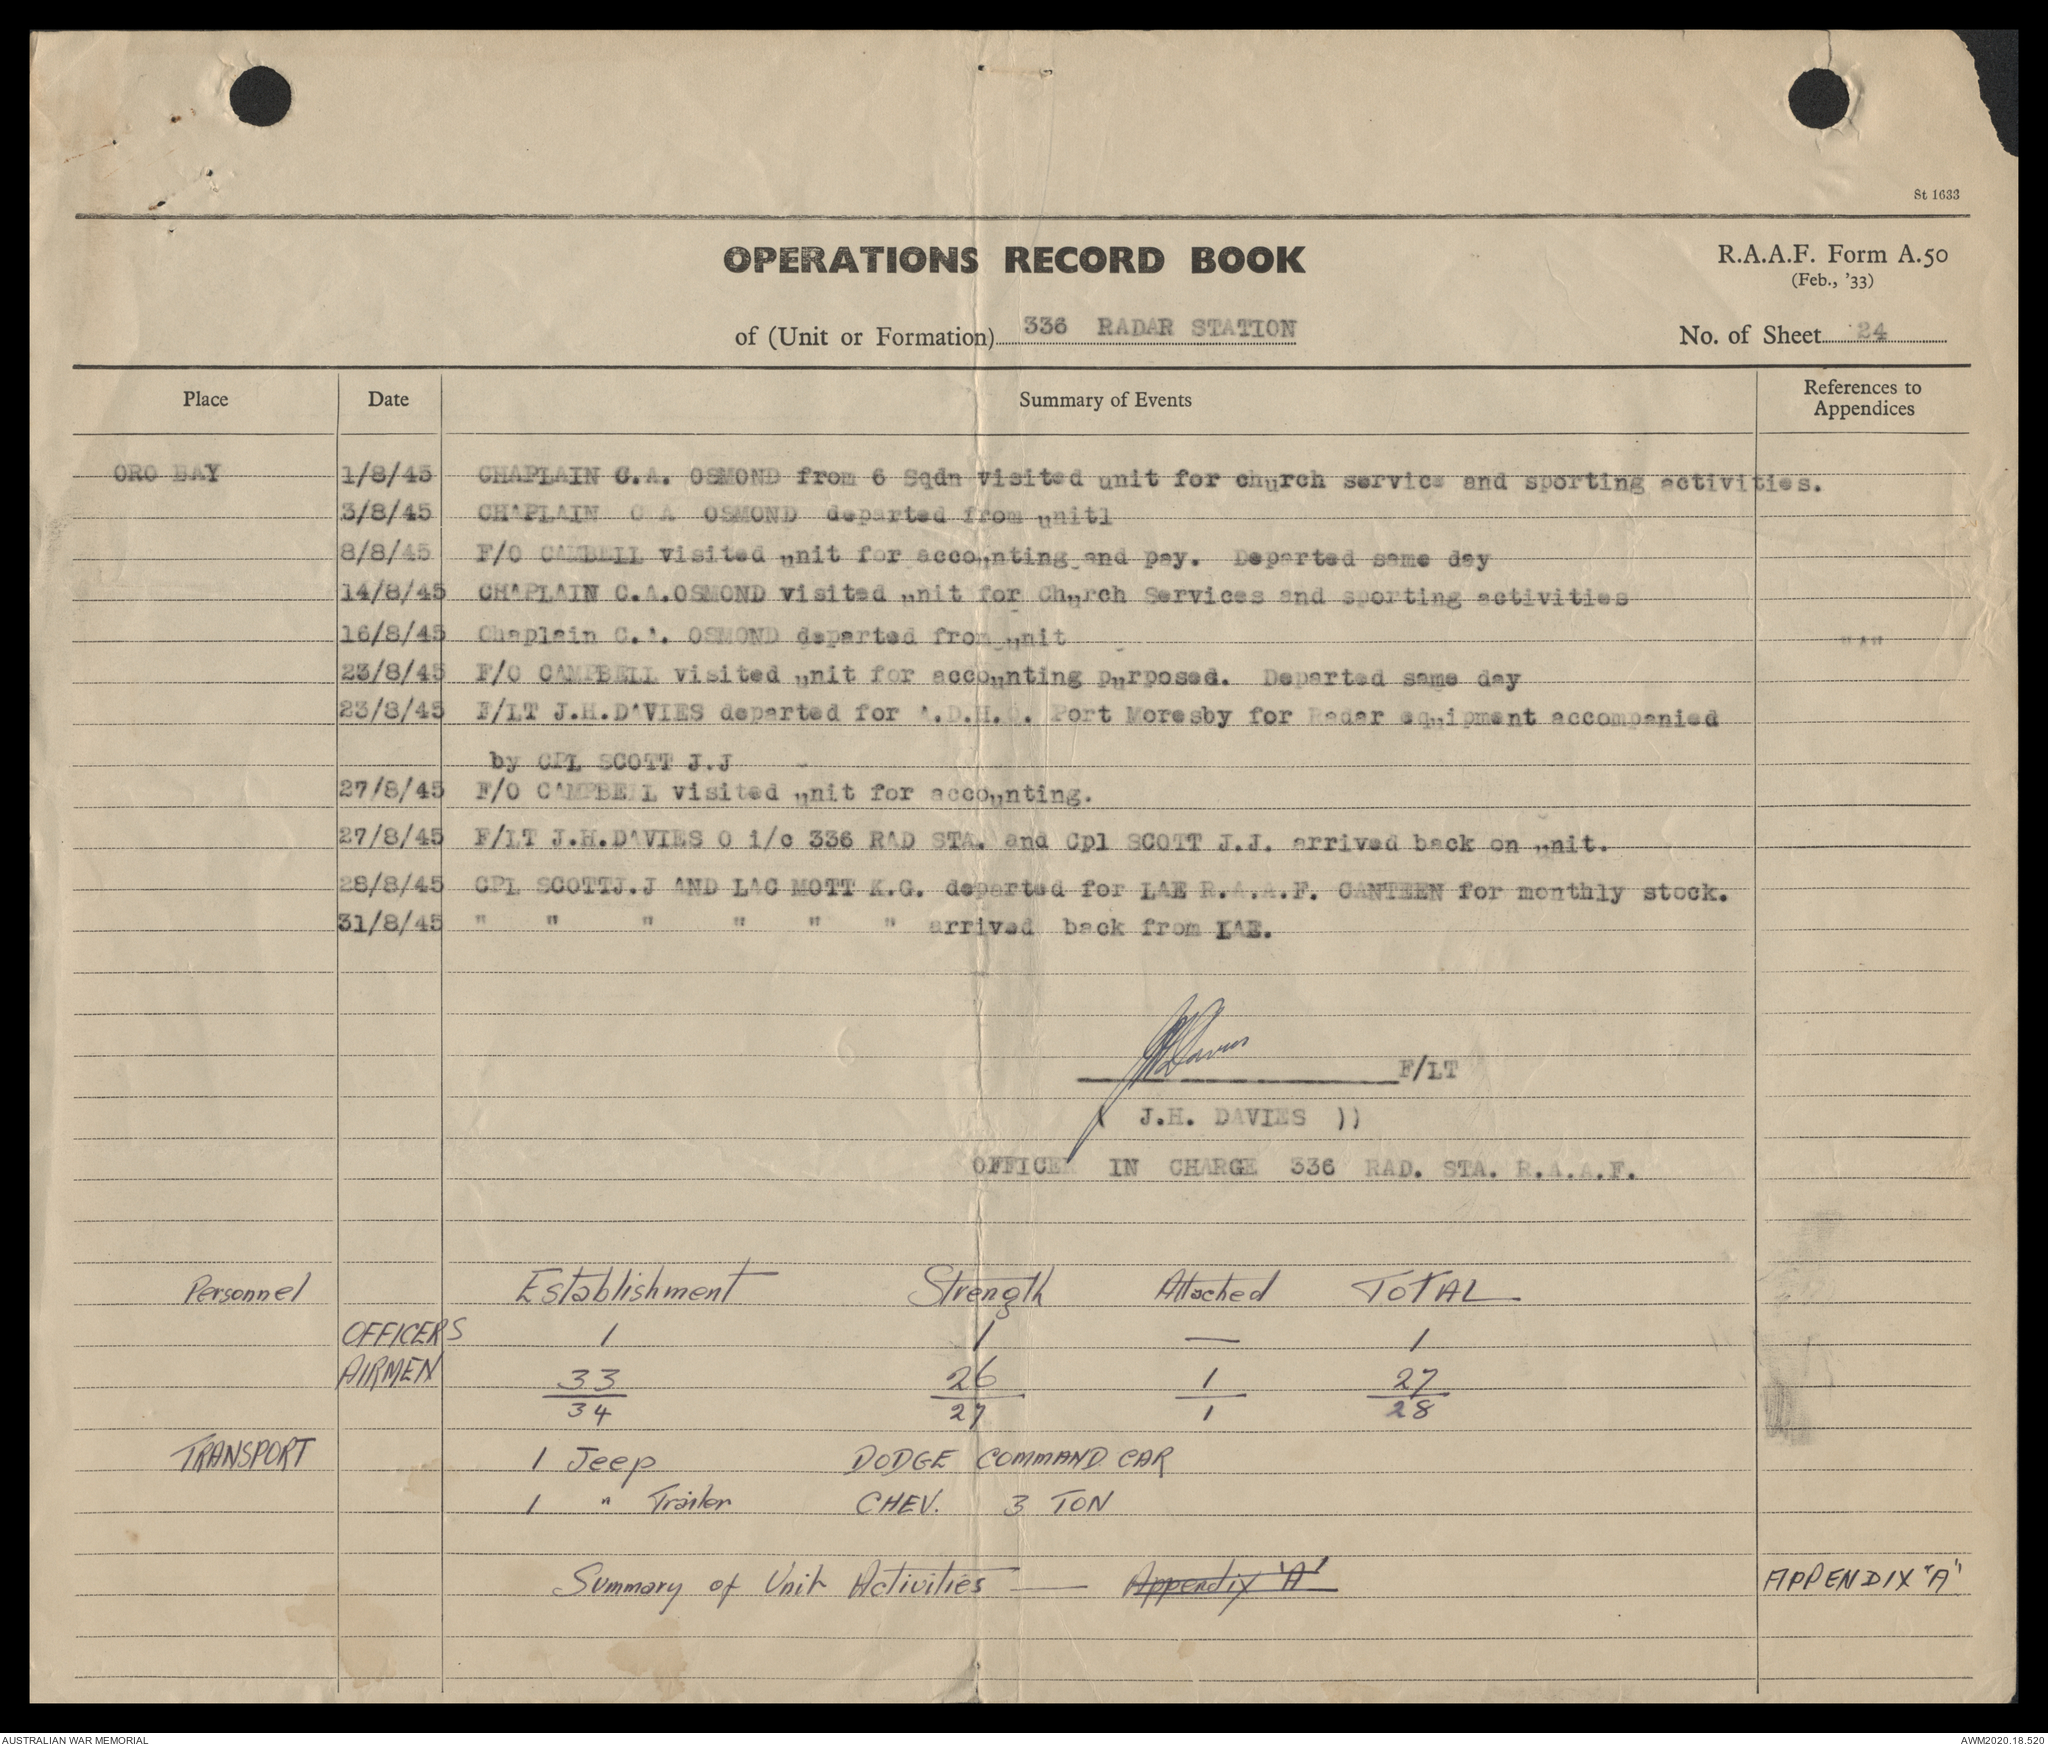 St 1633
OPERATIONS RECORD BOOK
R.A.A.F. Form A.50
(Feb., '33)
of (Unit or Formation) 336 RADAR STATION
No. of Sheet 24
Place Date Summary of Events References to Appendices
ORO BAY 1/8/45 CHAPLAIN C.A. OSMOND from 6 Sqdn visited unit for church service and sporting activities.
3/8/45 CHAPLAIN C A OSMOND departed from unitl
8/8/45 F/O CAMBELL visited unit for accounting and pay. Departed same day
14/8/45 CHAPLAIN C.A.OSMOND visited unit for Church Services and sporting activities
16/8/45 Chaplain C.A. OSMOND departed from unit "A"
23/8/45 F/O CAMPBELL visited unit for accounting purposed. Departed same day
23/8/45 F/LT J.H.DAVIES departed for A.D.H.Q. Port Moresby for Radar equipment accompanied
by CPL SCOTT J.J
27/8/45 F/O CAMPBELL visited unit for accounting.
27/8/45 F/LT J.H.DAVIES O i/c 336 RAD STA. and Cpl SCOTT J.J. arrived back on unit.
28/8/45 CPL SCOTTJ.J AND LAC MOTT K.G. departed for LAE R.A.A.F. CANTEEN for monthly stock.
31/8/45 " " " " " " arrived back from LAE.
JHDavies F/LT
( J.H. DAVIES ))
OFFICER IN CHARGE 336 RAD. STA. R.A.A.F.
Personnel Establishment Strength Attached TOTAL
OFFICERS 1 1 — 1
AIRMEN 33 26 1 27
34 27 1 28
TRANSPORT 1 Jeep DODGE COMMAND CAR
1 " Trailer CHEV. 3 TON
Summary of Unit Activities — Appendix 'A' APPENDIX "A"
AUSTRALIAN WAR MEMORIAL
AWM2020.18.520